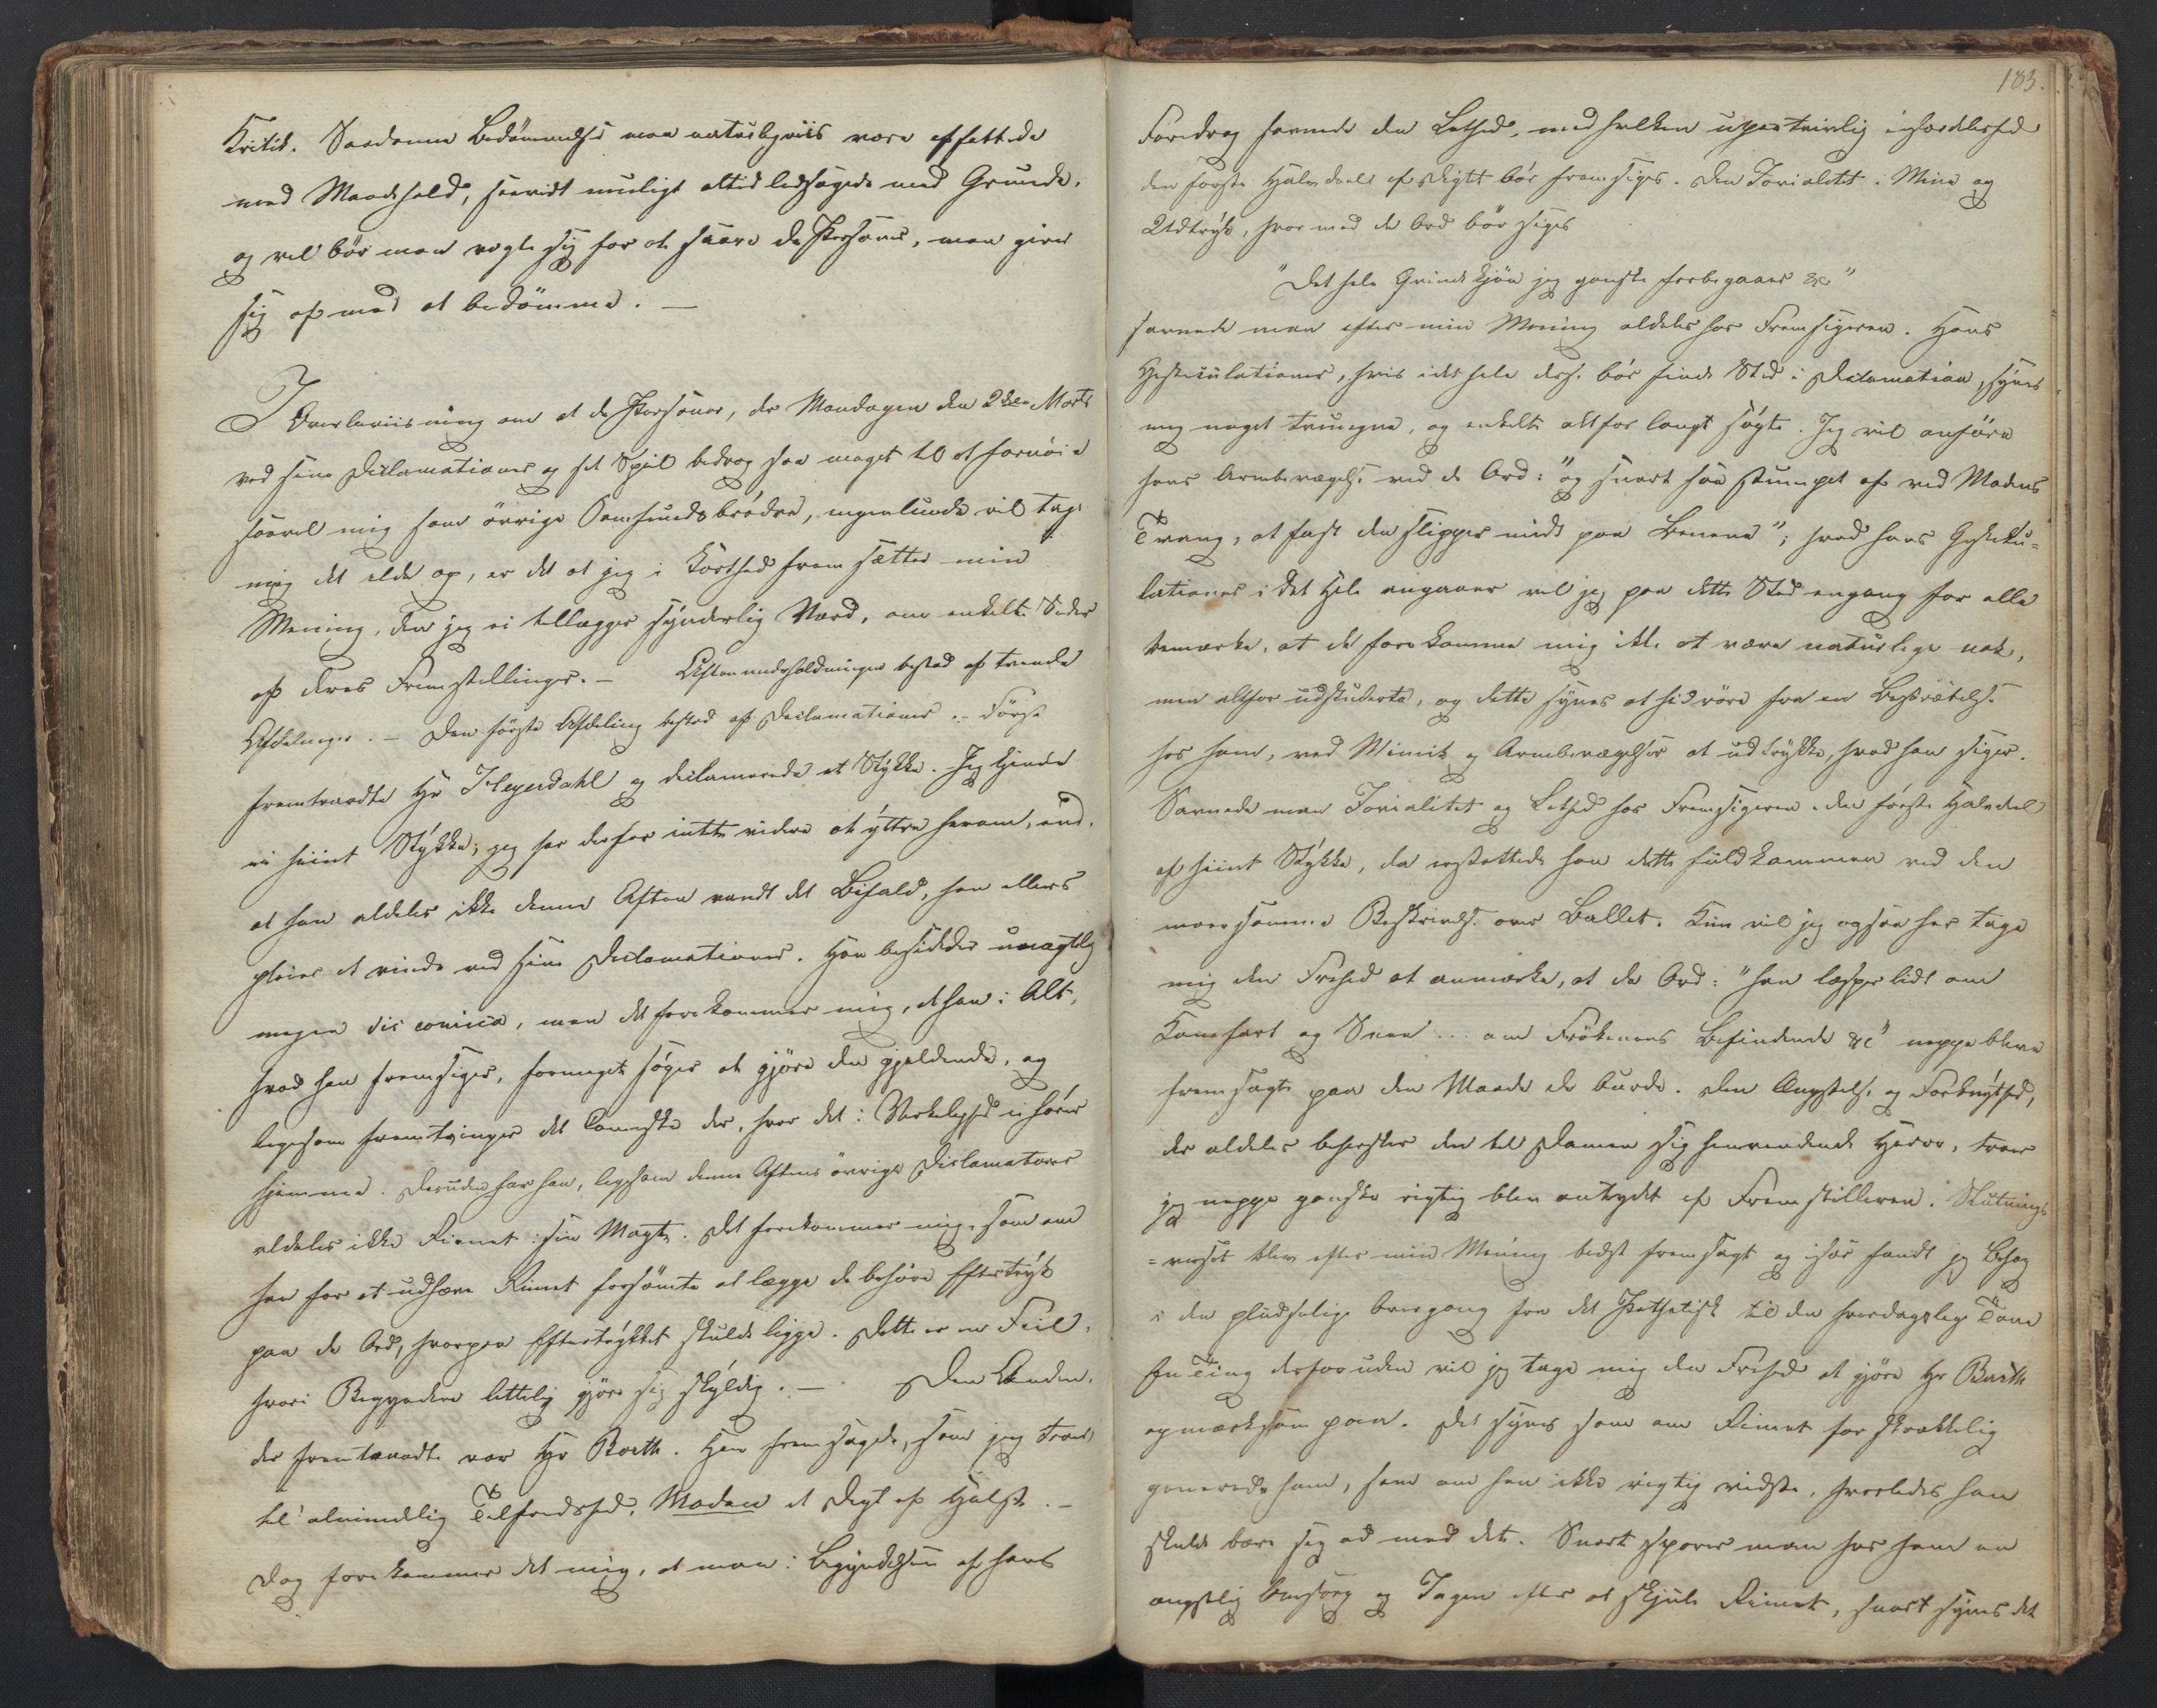 Kritik. Saadanne Bedømmelser maa naturligviis være affattede
med Maadehold, saavidt muligt altid ledsagede med Grunde,
og vel bör man vogte sig for at saare de Personer, man giver
sig af med at bedömme. —
I Overbeviisning om at de Personer, der Mandagen den 2den Marts
ved sine Declamationer og sit Spil bidrog saa meget til at fornöie
saavel mig som övrige Samfundsbrödre, ingenlunde vil tage
mig det ilde op, er det at jeg i Korthed fremsætter min
Mening, den jeg ei tillægger synderlig Værd, om enkelte Sider
af deres Fremstillinger. — Aftenunderholdningen bestod af trende
Afdelinger. — Den förste Afdeling bestod af Declamationer. — Först
fremtraadte Hr Heyerdahl og declamerede et Stykke. Jeg kjender
ei hiint Stykke; jeg har derfor intet videre at yttre herom, end
at han aldeles ikke denne Aften vandt det Bifald, han ellers
pleier at vinde ved sine Declamationer. Han besidder unægtelig
megen vis comica, men det forekommer mig, at han i Alt,
hvad han fremsiger, formeget söger at gjöre den gjældende, og
ligesom fremtvinger det Comiske der, hvor det i Virkelighed ei hörer
hjemme. Desuden har han, ligesom denne Aftens övrige Declamatorer
aldeles ikke Rimet i sin Magt. Det forekommer mig, som om
han for at udhæve Rimet forsömte at lægge det behöve Eftertryk
paa de Ord, hvorpaa Eftertrykket skulde ligge. Dette er en Feil,
hvori Begyndere lettelig gjöre sig skyldig. — Den Anden,
der fremtraadte var Hr Barth. Han fremsagde, som jeg troer
til almindelig Tilfredshed, Moden et Digt af Hielst. —
Dog forekommer det mig, at man i Begyndelsen af hans
183.
Foredrag savnede den Lethed, med hvilken upaatvivlig isærdeleshed
den förste Halvdeel af Digtet bör fremsiges. Den Jovialitet i Mine og
Udtryk, hvormed de Ord bör siges
"Det hele Grinds kjön jeg ganske forbigaaer &c"
savnede man efter min Mening aldeles hos Fremsigeren. Hans
Gesticulationer, hvis i det hele des. bör finde Sted i Declamation, synes
mig noget tvungne, og enkelte altfor langt sögte. Jeg vil anföre
hans Armbevægelse ved de Ord: "og snart saa stumpet af ved Modens
Trang, at fast den slipper midt paa Benene"; hvad hans Gesticu-
lationer i det Hele angaaer vil jeg paa dette Sted engang for alle
bemærke, at de forekomme mig ikke at være naturlige nok,
men altfor udstuderte, og dette synes at hidröre fra en Bestræbelse
hos ham, ved Mimik og Armbevægelser at udtrykke, hvad han siger.
Savnede man Jovialitet og Lethed hos Fremsigeren i den förste Halvdeel
af hiint Stykke, da erstattede han dette fuldkommen ved den
morsomme Beskrivelse over Ballet. Kun vil jeg ogsaa her tage
mig den Frihed at anmærke, at de Ord: "han læsper lidt om
Kanefart og Snee ... om Frökenens Befindende &c" neppe bleve
fremsagte paa den Maade de burde. Den Ængstelse og Forknythed,
der aldeles behersker den til Damen sig henvendende Herre, troer
jeg neppe ganske rigtig blev antydet af Fremstilleren. Slutnings
=verset blev efter min Mening bedst fremsagt og især fandt jeg Behag
i den pludselige Overgang fra det Pathetisk til den hverdagslige Tone
En Ting desforuden vil jeg tage mig den Frihed at gjöre Hr Barth
opmærksom paa. Det synes som om Rimet forskrækkelig
generede ham, som om han ikke rigtig vidste, hvorledes han
skulde bære sig ad med det. Snart sporer man hos ham en
ængstelig Omsorg og Jagen efter at skjule Rimet, snart synes det